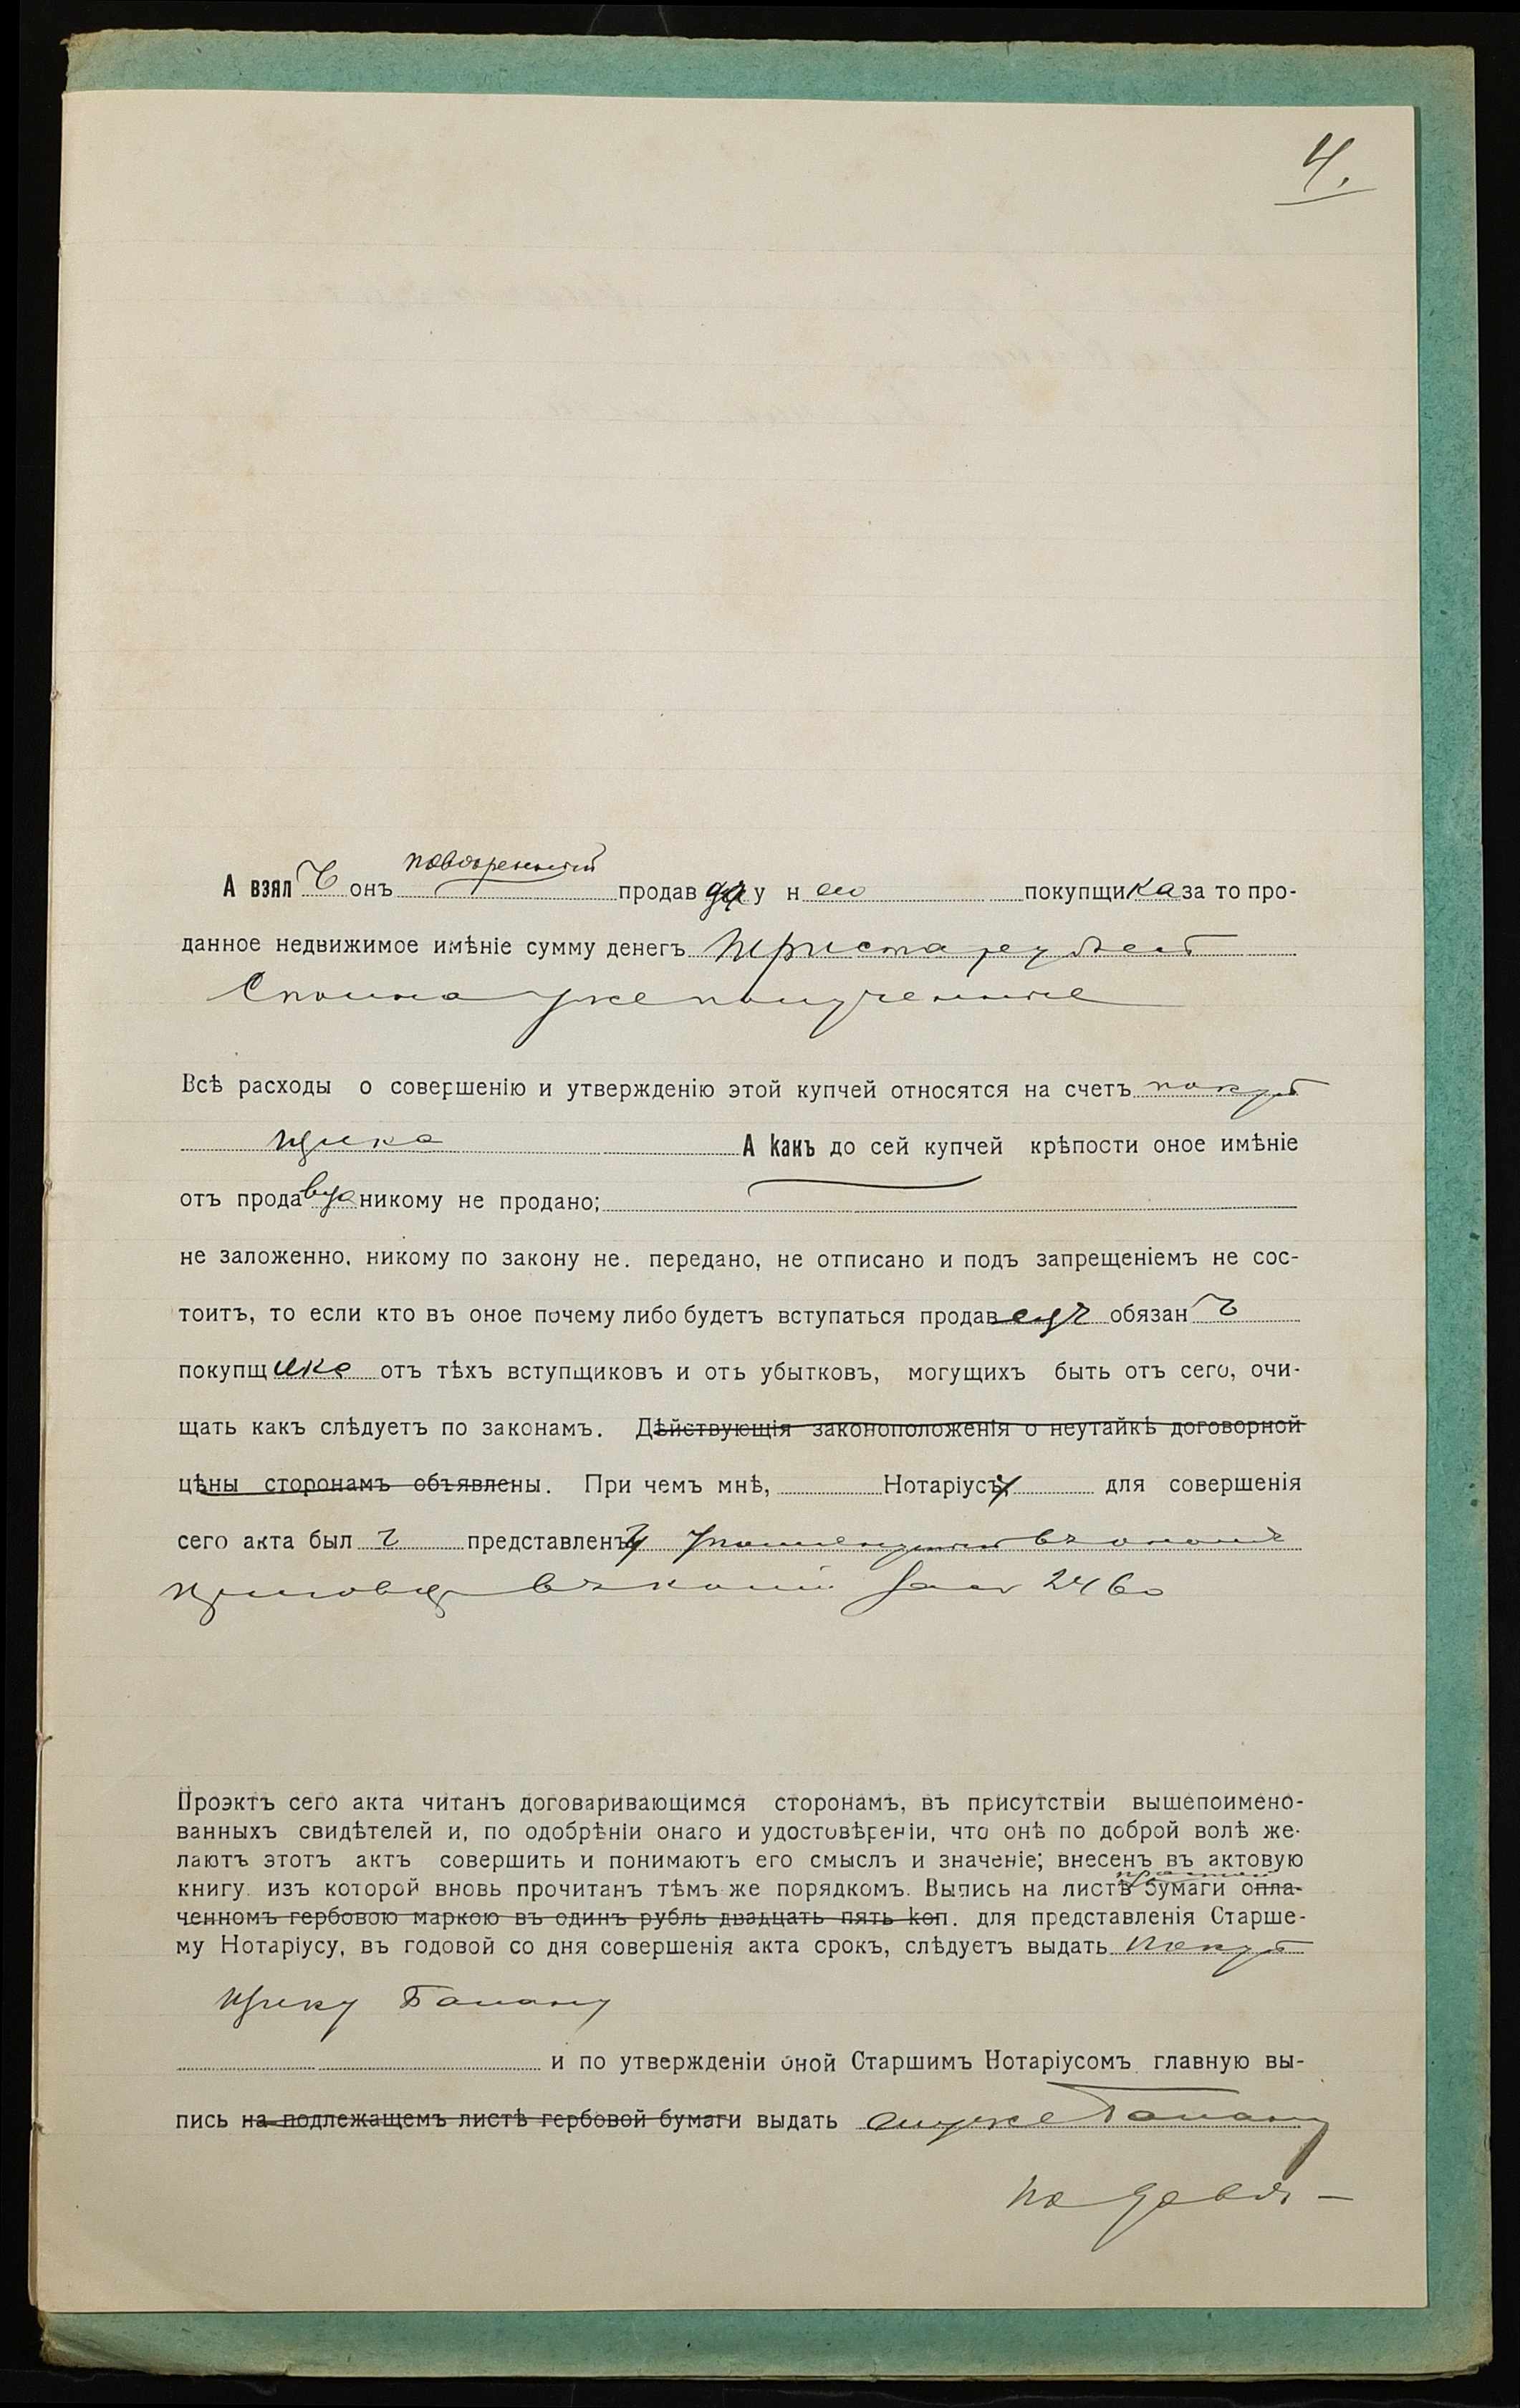 4.
повѣренный
А взялъ онъ продавца у него покупщика за то про-
данное недвижимое имѣніе сумму денегъ триста рублей
Сполна уже полученные
Всѣ расходы о совершенію и утвержденію этой купчей относятся на счетъ покуп
щика А какъ до сей купчей крѣпости оное имѣніе
отъ продавца никому не продано;
не заложенно, никому по закону не. передано, не отписано и подъ запрещеніемъ не сос-
тоитъ, то если кто въ оное почему либо будетъ вступаться продавецъ обязанъ
покупщика отъ тѣхъ вступщиковъ и отъ убытковъ, могущихъ быть отъ сего, очи-
щать какъ слѣдуетъ по законамъ. Дѣйствующія законоположенія о неутайкѣ договорной
цѣны сторонамъ объявлены. При чемъ мнѣ, Нотаріусу для совершенія
сего акта былъ представленъ въ
въ копіи 2460
Проэктъ сего акта читанъ договаривающимся сторонамъ, въ присутствіи вышепоимено-
ванныхъ свидѣтелей и, по одобрѣніи онаго и удостовѣреніи, что онѣ по доброй волѣ же-
лаютъ этотъ актъ совершить и понимаютъ его смыслъ и значеніе; внесенъ въ актовую
простой
книгу. изъ которой вновь прочитанъ тѣмъ же порядкомъ. Выпись на листѣ бумаги опла-
ченномъ гербовою маркою въ одинъ рубль двадцать пять коп. для представленія Старше-
му Нотаріусу, въ годовой со дня совершенія акта срокъ, слѣдуетъ выдать покуп
щику Балану
и по утвержденіи оной Старшимъ Нотаріусомъ главную вы-
пись на подлежащемъ листѣ гербовой бумаги выдать ему же Балану